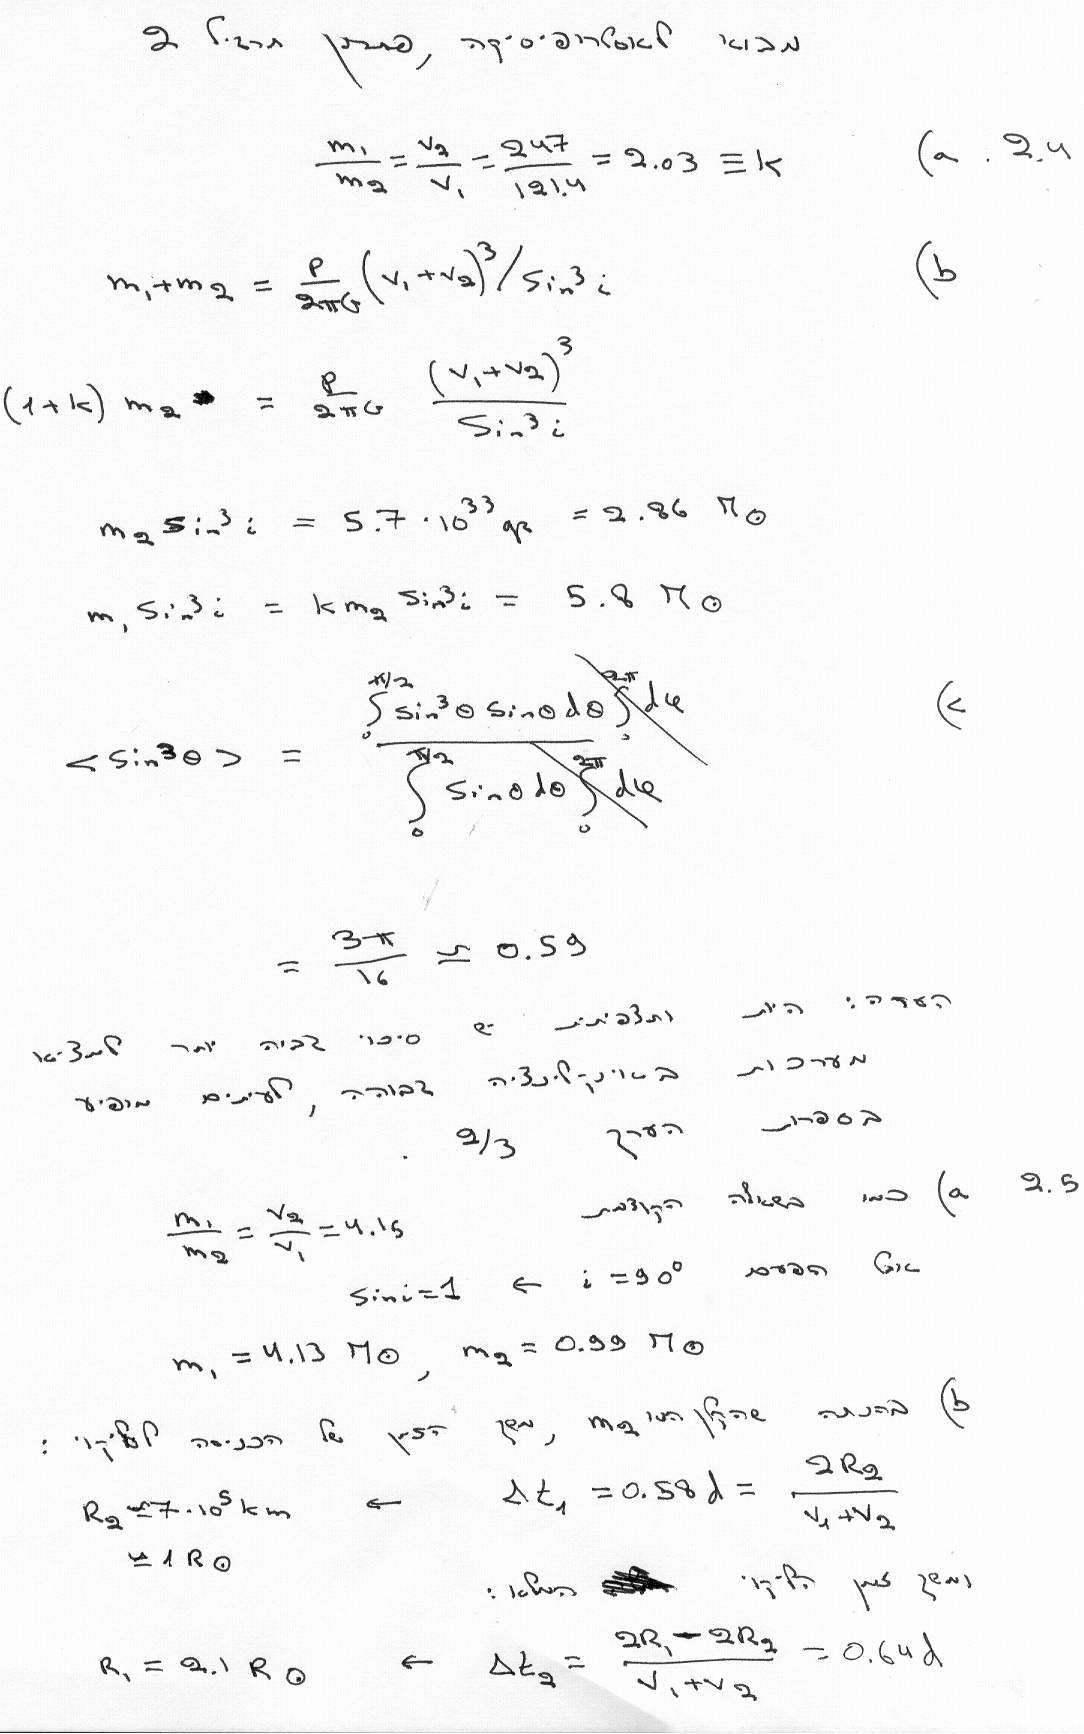 מבוא לאסטרופיסיקה, פתרון תרגיל 2
2.4 . a) m₁/m₂ = v₂/v₁ = 247/121.4 = 2.03 ≡ k
b) m₁+m₂ = P/2πG (v₁+v₂)³/sin³i
(1+k) m₂ = P/2πG (v₁+v₂)³/sin³i
m₂ sin³i = 5.7·10³³ gr = 2.86 M⊙
m₁ sin³i = k m₂ sin³i = 5.8 M⊙
c) <sin³θ> = ∫₀^{π/2} sin³θ sinθ dθ ∫₀^{2π} dφ / ∫₀^{π/2} sinθ dθ ∫₀^{2π} dφ
= 3π/16 ≃ 0.59
הערה: היות ותצפיתית יש סיכוי גבוה יותר למצוא
מערכות באינקלינציה גבוהה, לעיתים מופיע
בספרות הערך 2/3 .
2.5 a) כמו בשאלה הקודמת m₁/m₂ = v₂/v₁ = 4.15
אבל הפעם i = 90° ← sin i = 1
m₁ = 4.13 M⊙ , m₂ = 0.99 M⊙
b) בהנחה שהקטן הוא m₂, משך הזמן של הכניסה לליקוי :
Δt₁ = 0.58d = 2R₂/(v₁+v₂) ← R₂ ≃ 7·10⁵ km
≃ 1 R⊙
ומשך זמן הליקוי המלא :
Δt₂ = (2R₁ - 2R₂)/(v₁+v₂) = 0.64d ← R₁ = 2.1 R⊙